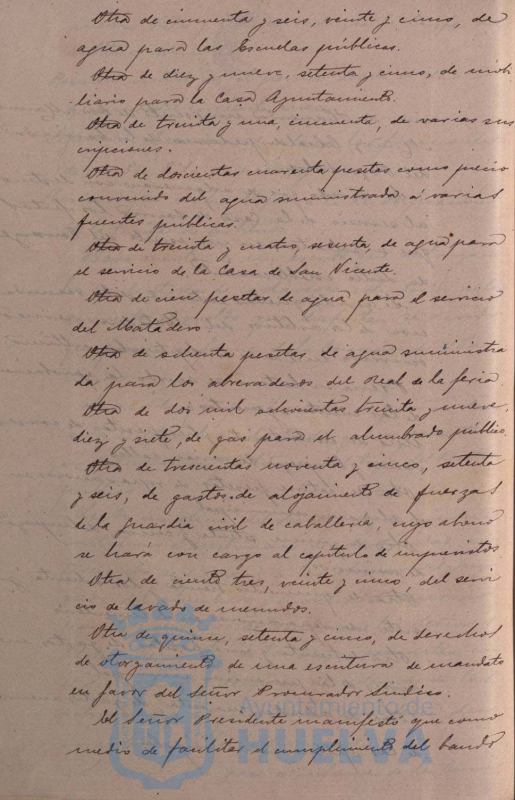 Otra de cincuenta y seis, veinte y cinco, de
agua para las Escuelas públicas.
Otra de diez y nueve, setenta y cinco, de mobi-
liario para la Casa Ayuntamiento.
Otra de treinta y una, cincuenta, de varias sus
cripciones.
Otra de doscientas cuarenta pesetas como precio
convenido del agua suministrada á varias
fuentes públicas.
Otra de treinta y cuatro, sesenta, de agua para
el servicio de la Casa de San Vicente.
Otra de cien pesetas de agua para el servicio
del Matadero
Otra de ochenta pesetas de agua suministra
da para los abrevaderos del Real de la feria
Otra de dos mil ochocientas treinta y nueve,
diez y siete, de gas para el alumbrado público.
Otra de trescientas noventa y cinco, setenta
y seis, de gastos de alojamiento de fuerzas
de la guardia civil de caballería, cuyo abono
se hará con cargo al capítulo de imprevistos
Otra de ciento tres, veinte y cinco, del servi
cio de lavado de menudos.
Otra de quince, setenta y cinco, de derechos
de otorgamiento de una escritura de mandato
en favor del Señor Procurador Síndico.
El Señor Presidente manifestó que como
medio de facilitar el cumplimiento del bando
Ayuntamiento de
HUELVA